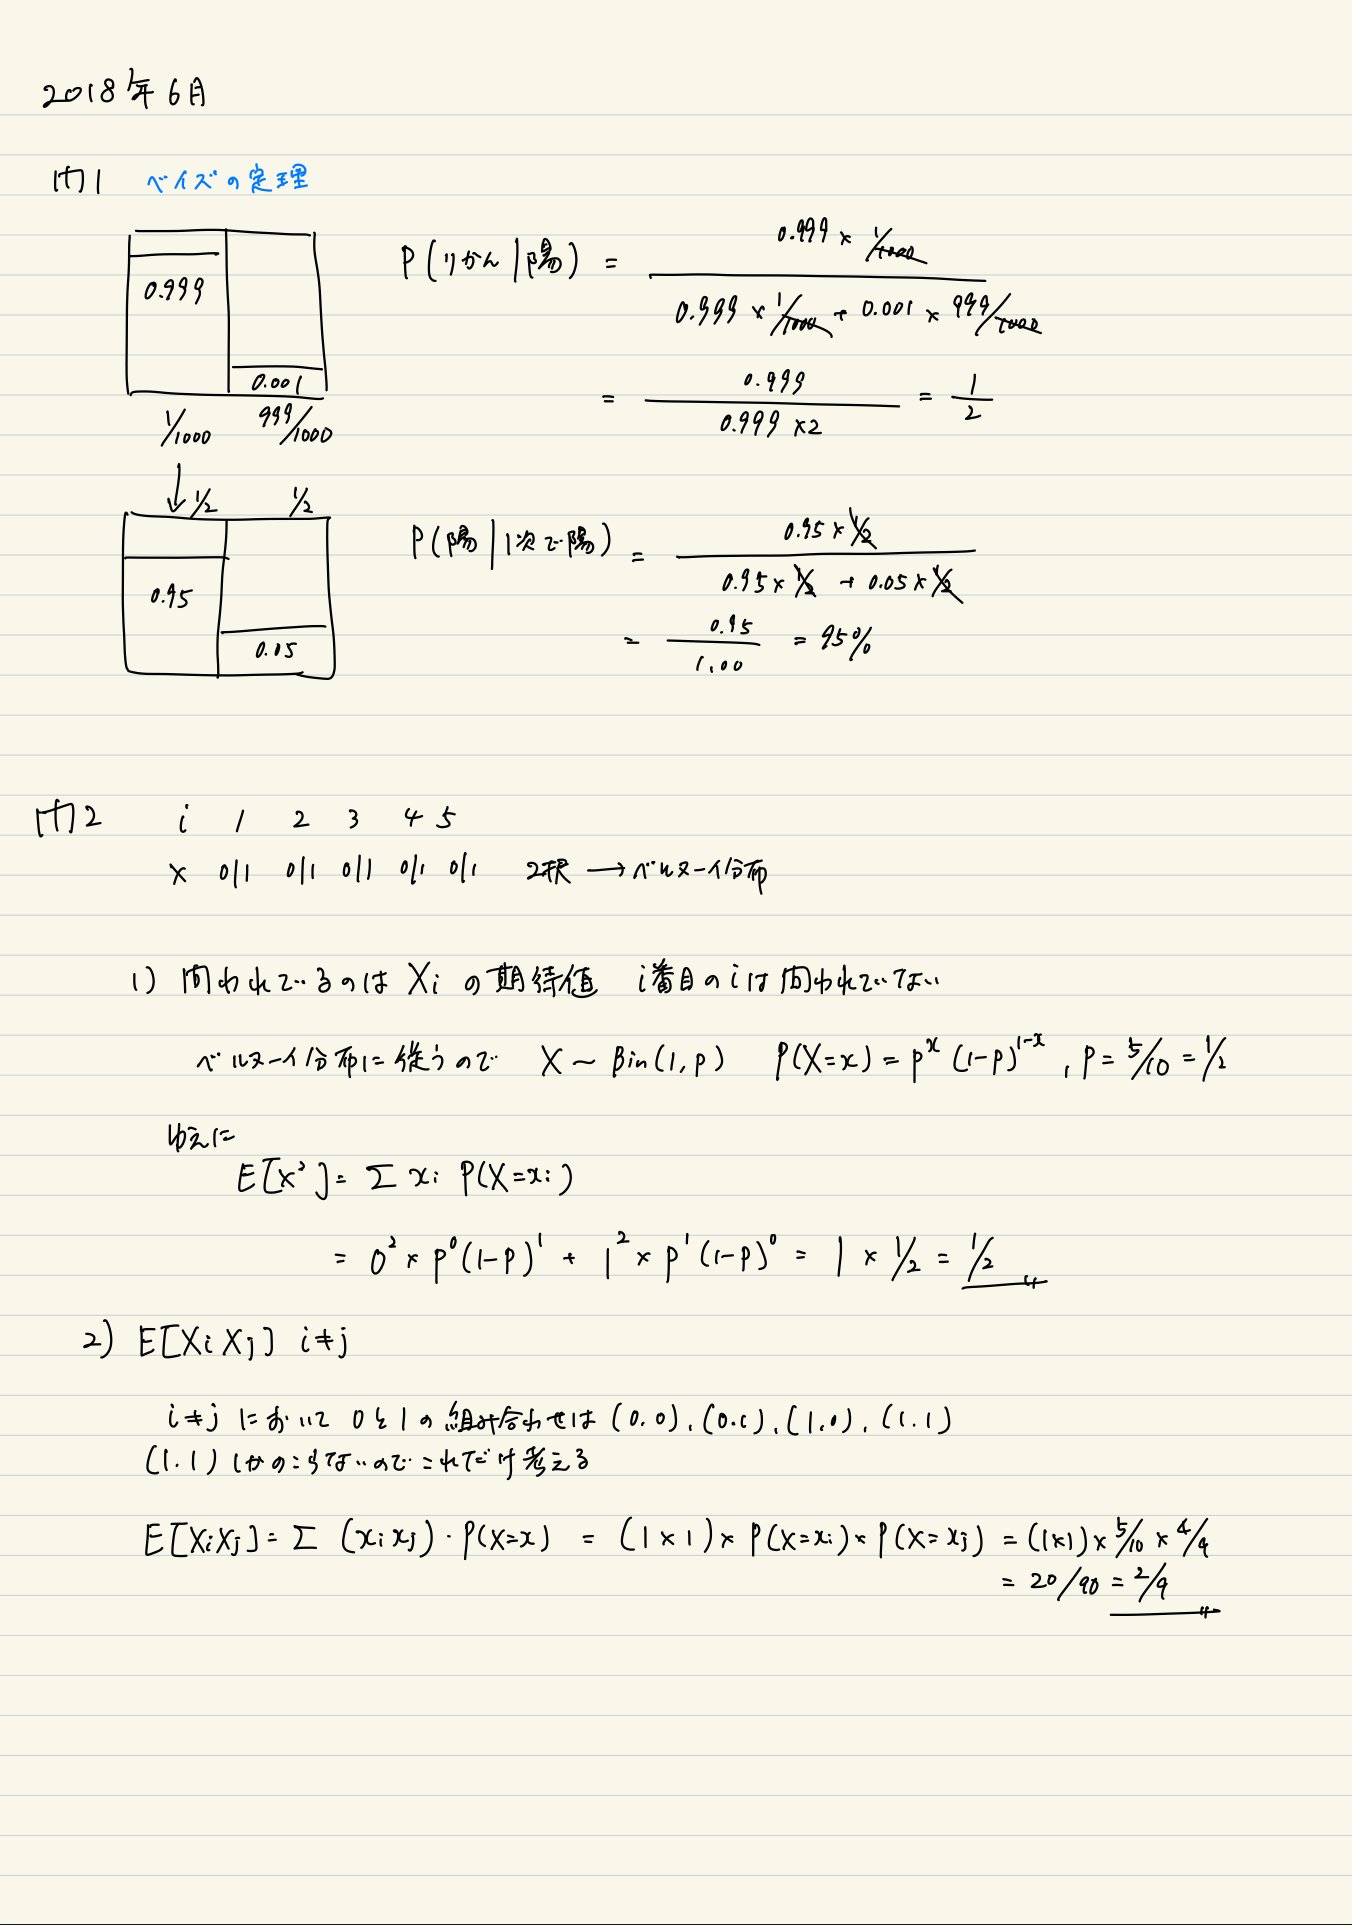 2018年6月
問1 ベイズの定理
0.999
0.001
1/1000 999/1000
P(りかん|陽) = 0.999 × 1/1000 / 0.999 × 1/1000 + 0.001 × 999/1000
= 0.999 / 0.999 ×2 = 1/2
1/2 1/2
0.95
0.05
P(陽|1次で陽) = 0.95 × 1/2 / 0.95 × 1/2 + 0.05 × 1/2
= 0.95 / 1.00 = 95%
問2 i 1 2 3 4 5
x 0|1 0|1 0|1 0|1 0|1 2択 → ベルヌーイ分布
1) 問われているのは Xi の期待値 i番目のiは問われていない
ベルヌーイ分布に従うので X ~ Bin(1, p) P(X=x) = p^x (1-p)^1-x , P = 5/10 = 1/2
ゆえに
E[X²] = Σ xi P(X=xi)
= 0² × p⁰(1-p)¹ + 1² × p¹(1-p)⁰ = 1 × 1/2 = 1/2
2) E[Xi Xj] i≠j
i≠j において 0と1の組み合わせは (0.0), (0.1), (1.0), (1.1)
(1.1) しかのこらないのでこれだけ考える
E[XiXj] = Σ (xi xj)・P(X=x) = (1×1) × P(X=xi) × P(X=xj) = (1×1) × 5/10 × 4/9
= 20/90 = 2/9